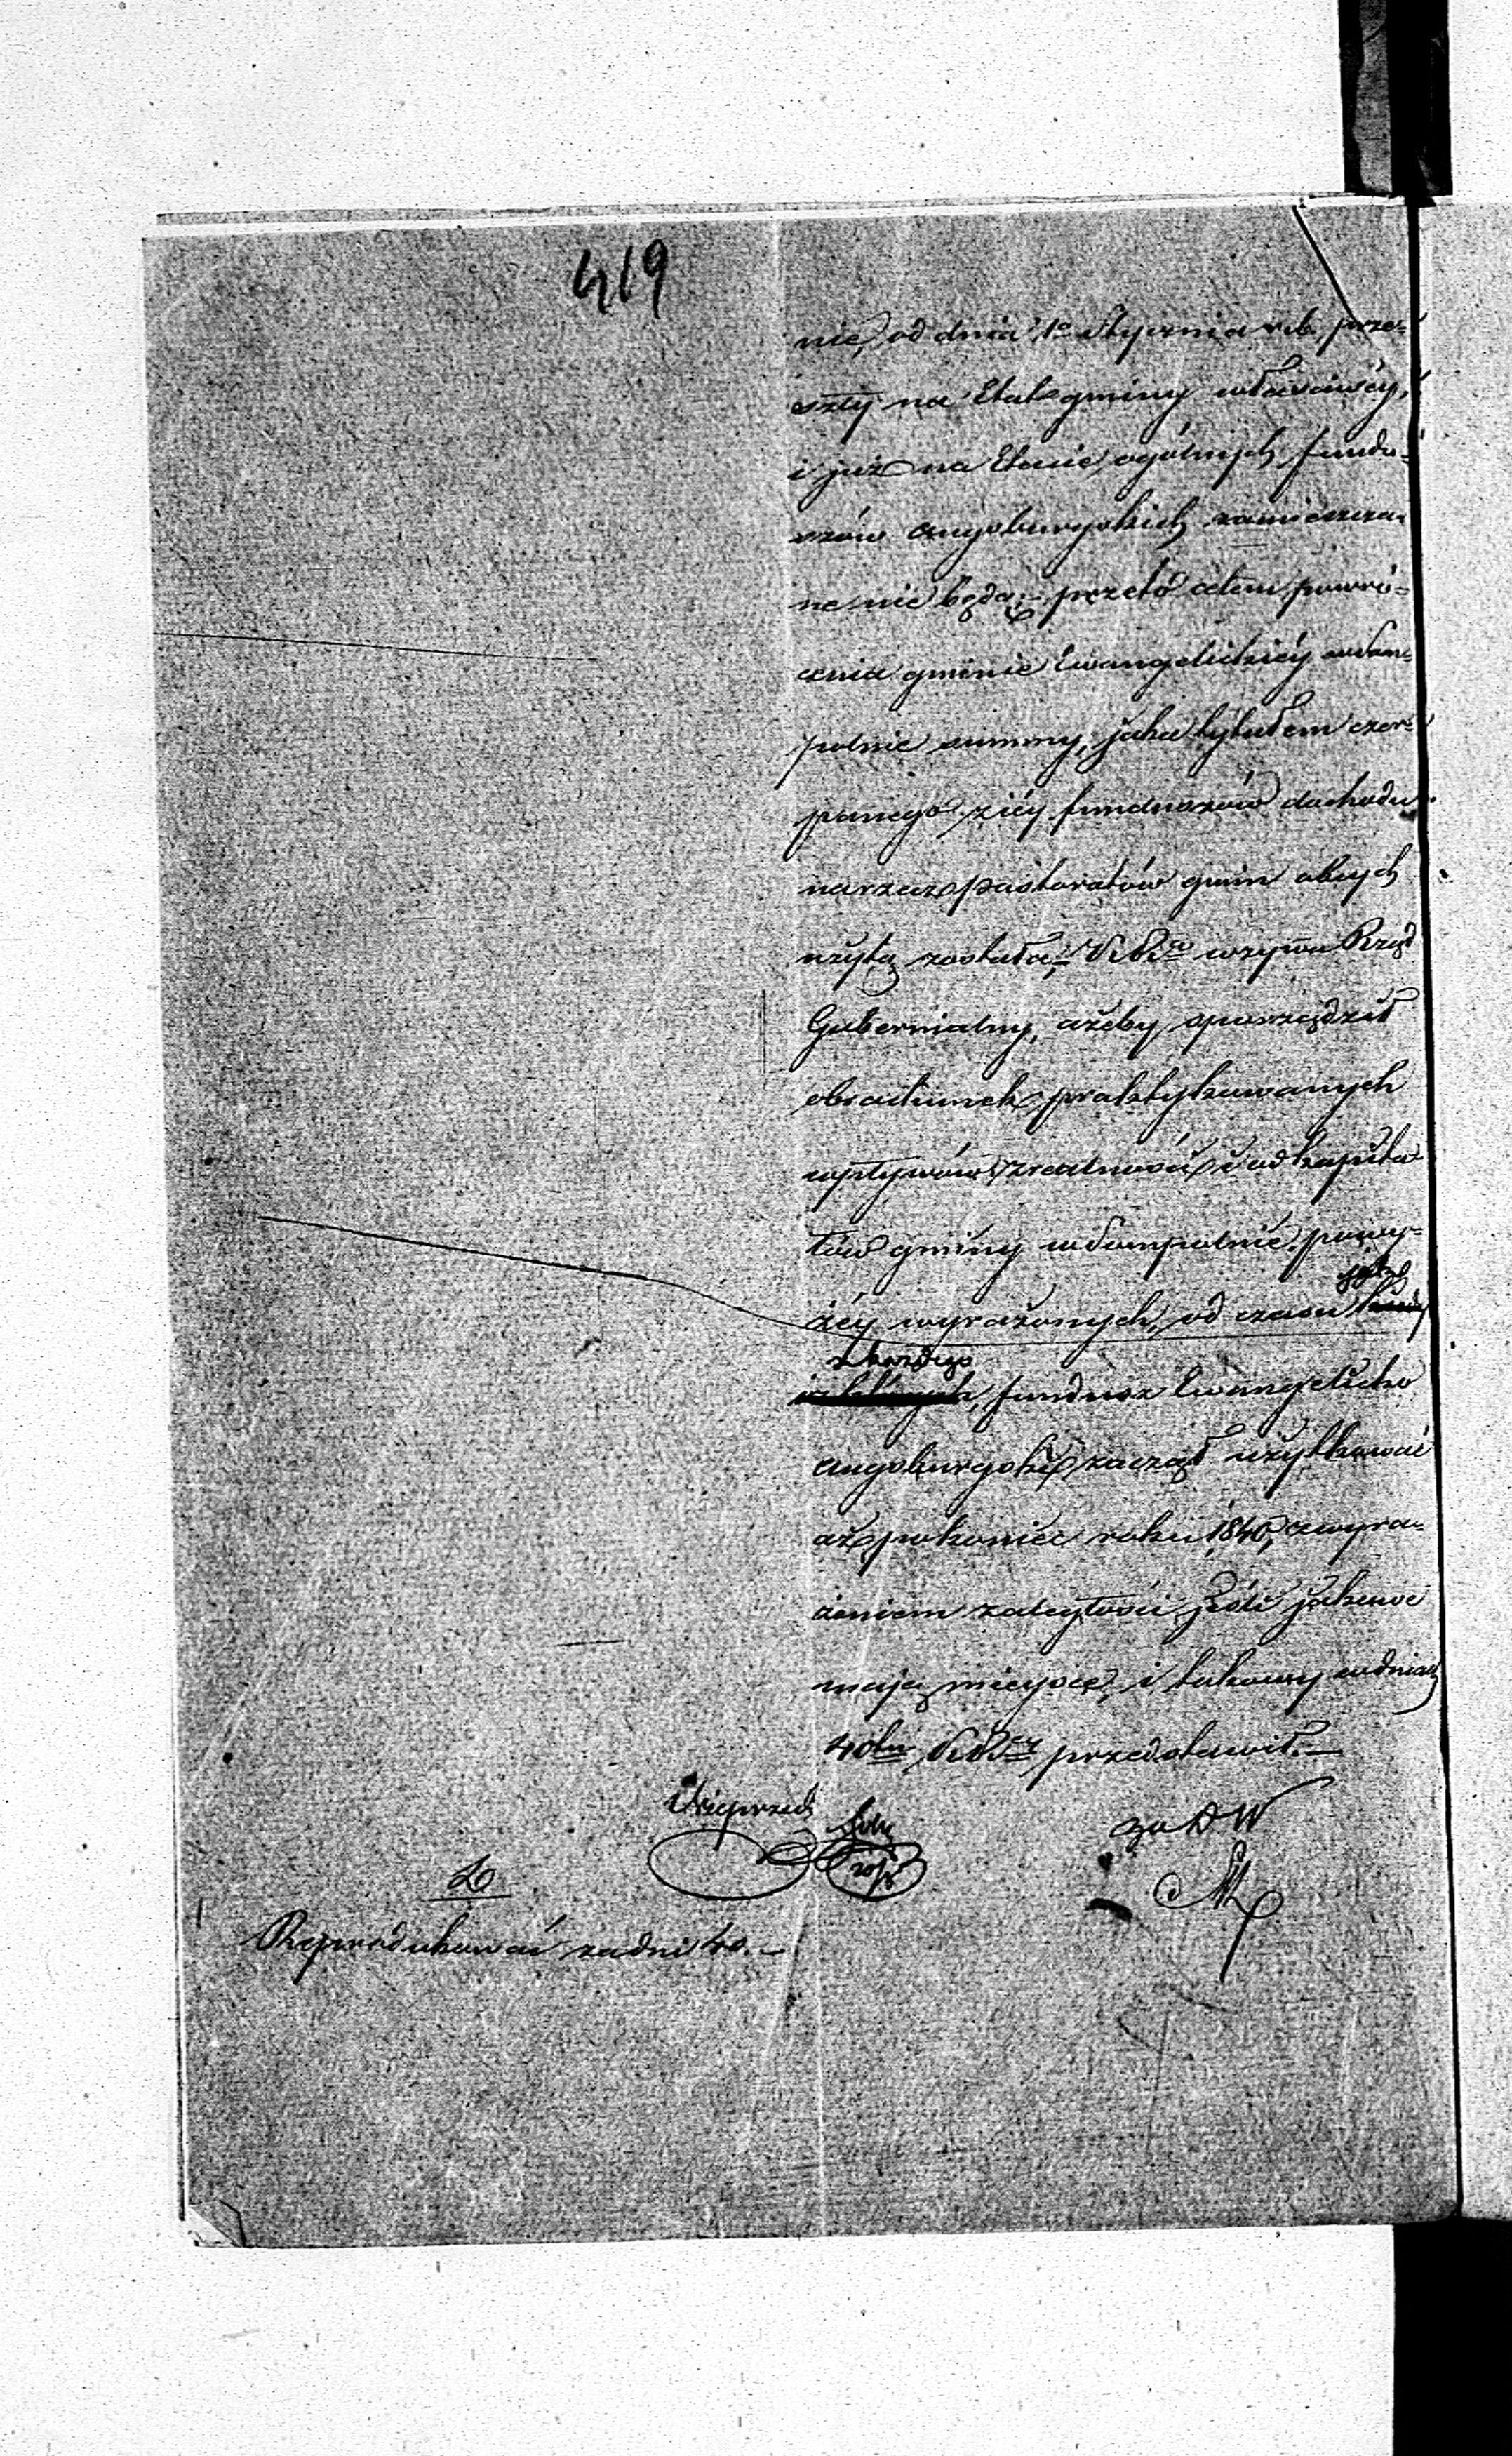 419
nie, od dnia 1o Stycznia r. b. prze-
szły na Etat gminy właściwéy,
i już na Etacie ogólnych fundu-
szów augsburgskich zamieszcza-
ne nie będą; – przeto celem powró-
cenia gminie Ewangelickiéy w Som-
polnie summy, jaka tytułem czer-
panego z iéy funduszów dochodu
na rzecz pastoratów gmin obcych
użytą została; – wzywa Rząd
Gubernialny, ażeby sporządził
obrachunek praktykowanych
wpływów z realności i od kapita-
łów gminy w Sompolnie powy-
żéy wyrażonych, od czasu
z każdego
fundusz Ewangelicko
augsburgski zaczął użytkować
aż po koniec roku 1846, z wyra-
żeniem zaległości jeśli jakowe
mają mieysce, i takowy w dniach
40tu przedstawił. –
za DW
Reprodukować za dni 40. –